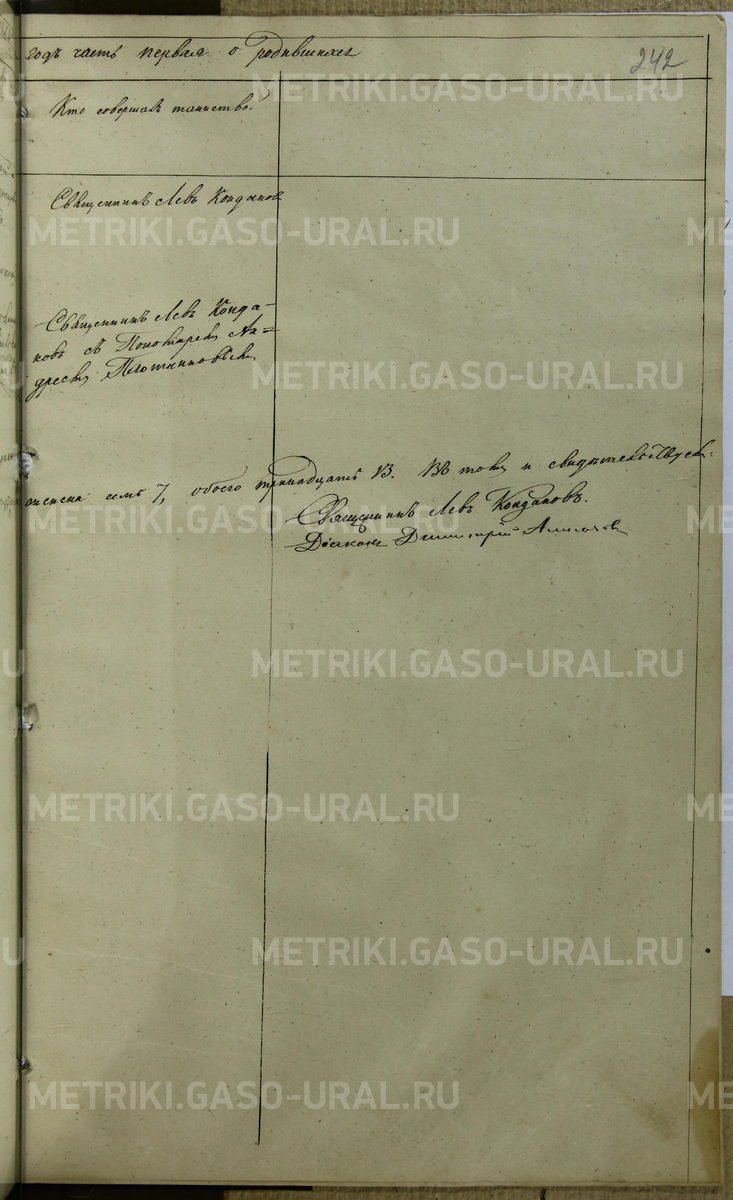 годъ часть первая о родившихся
242
Кто совершалъ таинство.
Священникъ Левъ Кондаков
METRIKI.GASO-URAL.RU
Священникъ Левъ Конда-
ковъ съ Пономаремъ Ан=
дреемъ Плотниковымъ
METRIKI.GASO-URAL.RU
женска семь 7, обоего тринадцать 13. Въ томъ и свидѣтельствуемъ.
Священникъ Левъ Кондаковъ.
Діаконъ Димитрій
METRIKI.GASO-URAL.RU
METRIKI.GASO-URAL.RU
METRIKI.GASO-URAL.RU
METRIKI.GASO-URAL.RU
METRIKI.GASO-URAL.RU
METRIKI.GASO-URAL.RU